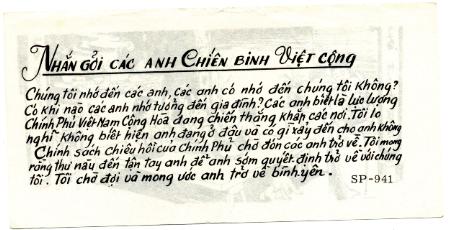 NHẮN GỞI CÁC ANH CHIẾN BINH VIỆT CỘNG
Chúng tôi nhớ đến các anh, các anh có nhớ đến chúng tôi không?
Có khi nào các anh nhớ tưởng đến gia đình? Các anh biết là lực lượng
Chính Phủ Việt-Nam Cộng Hoà đang chiến thắng khắp các nơi. Tôi lo
nghĩ không biết hiện anh đang ở đâu và có gì xảy đến cho anh không
Chính sách chiêu hồi của Chính Phủ chờ đón các anh trở về. Tôi mong
rằng thư nầy đến tận tay anh để anh sớm quyết định trở về với chúng
tôi. Tôi chờ đợi và mong ước anh trở về bình yên.
SP-941